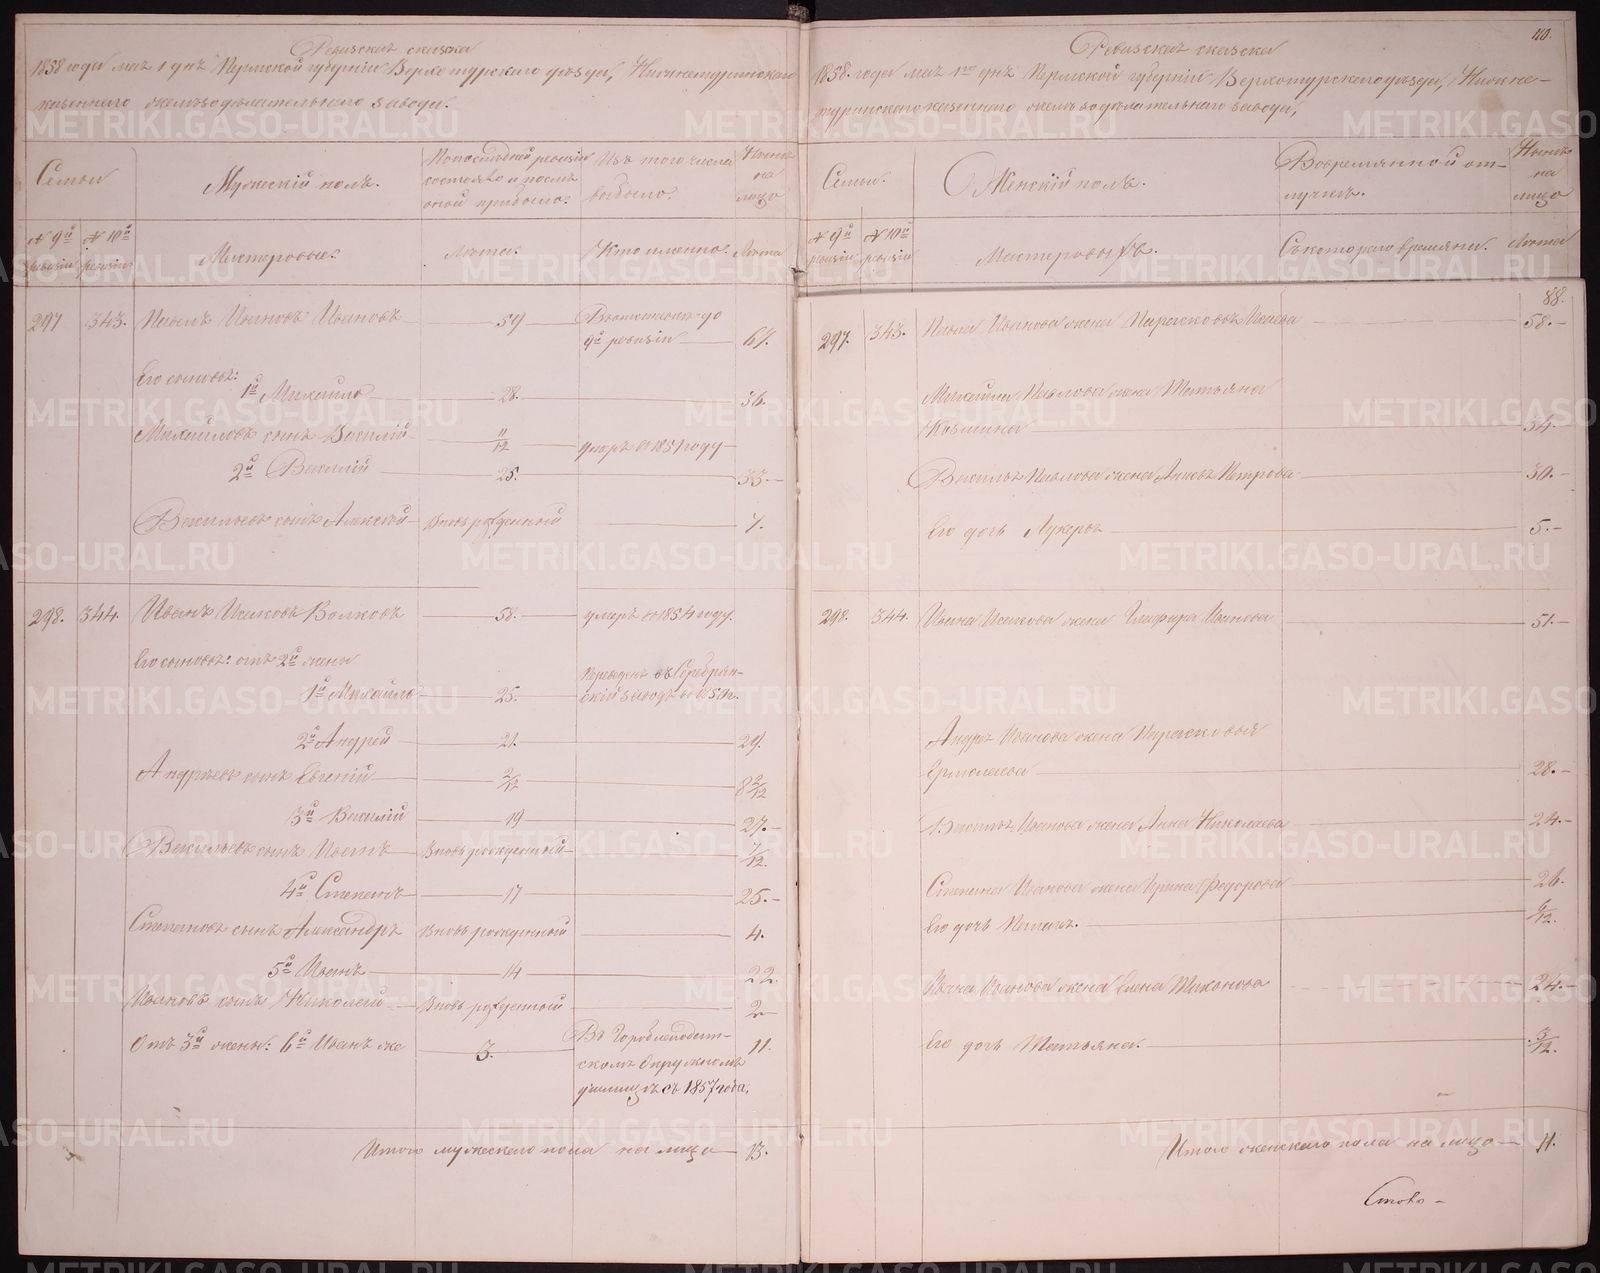 Ревизская сказка
1858 года мая 1 дня Пермской губернии Верхотурскаго уѣзда, Нижнетуринскаго
казеннаго железодѣлательнаго завода.
Семьи
Мужескій полъ.
По последней ревизіи состояло и послѣ оной прибыло.
Изъ того числа выбыло.
Нынѣ на лицо
№ 9й ревизіи
№ 10й ревизіи
Мастеровые.
Лѣта.
Кто именно.
Лѣта
297 343. Павелъ Ивановъ Ивановъ 59
9й ревизіи 67.
Его сыновья:
1й Михайло 28. 36.
Михайловъ сынъ Василій 11/12 умеръ въ 1851 году
2й Василій 25. 33.
Васильевъ сынъ Алексѣй Вновь рожденный 7.
298. 344. Иванъ Исаковъ Волковъ 58. умеръ въ 1854 году.
Его сыновья: отъ 2й жены
1й Михайло 25. Переведенъ въ Серебрян-
скій заводъ въ
2й Андрей 21. 29.
Андреевъ сынъ Евгеній 2/12 8 2/12
3й Василій 19 27.
Васильевъ сынъ Иванъ Вновь рожденный 7/12.
4й Степанъ 17 25.
Степановъ сынъ Александръ Вновь рожденный 4.
5й Иванъ 14 22.
Ивановъ сынъ Николай Вновь рожденный 2
Отъ 3й жены: 6й Иванъ же 3. Въ Гороблагодат- 11.
скомъ Окружномъ
училищѣ съ 1857 года.
Итого мужескаго пола на лицо 13.
110.
Ревизская сказка
1858. года мая 1го дня Пермской губерніи Верхотурскаго уѣзда, Нижне-
туринскаго казеннаго железодѣлательнаго завода,
Семьи.
Женскій полъ.
Во временной от-
лучкѣ.
Нынѣ на лицо
№ 9й ревизіи
№ 10й ревизіи
Мастеровыхъ.
Съ котораго времяни.
Лѣта
88.
297. 343. Павла Иванова жена Парасковья Исаева 58.
Михайла Павлова жена Татьяна
Козмина 34.
Василья Павлова жена Анна Петрова 30.
Его дочь Лукерья 5.
298. 344. Ивана Исакова жена Глафира Иванова 51.
Андрея Иванова жена Парасковья
Ермолаева 28.
Василья Иванова жена Анна Николаева 24.
Степана Иванова жена Ирина Федорова 26.
Его дочь 6/12.
Ивана Иванова жена Елена Тихонова 24.
Его дочь Татьяна. 3/12.
Итого женскаго пола на лицо 11.
METRIKI.GASO-URAL.RU